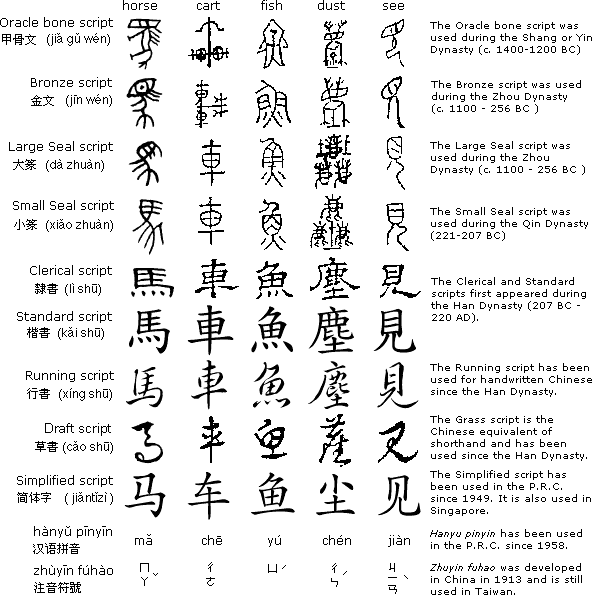 horse cart fish dust see
Oracle bone script
甲骨文 (jiǎ gǔ wén)
The Oracle bone script was
used during the Shang or Yin
Dynasty (c. 1400-1200 BC)
Bronze script
金文 (jīn wén)
The Bronze script was used
during the Zhou Dynasty
(c. 1100 - 256 BC )
Large Seal script
大篆 (dà zhuàn)
The Large Seal script was
used during the Zhou
Dynasty (c. 1100 - 256 BC )
Small Seal script
小篆 (xiǎo zhuàn)
The Small Seal script was
used during the Qin Dynasty
(221-207 BC)
Clerical script
隸書 (lì shū)
馬 車 魚 塵 見
The Clerical and Standard
scripts first appeared during
the Han Dynasty (207 BC -
220 AD).
Standard script
楷書 (kǎi shū)
馬 車 魚 塵 見
Running script
行書 (xíng shū)
馬 車 魚 塵 見
The Running script has been
used for handwritten Chinese
since the Han Dynasty.
Draft script
草書 (cǎo shū)
The Grass script is the
Chinese equivalent of
shorthand and has been
used since the Han Dynasty.
Simplified script
简体字 (jiǎntǐzì )
马 车 鱼 尘 见
The Simplified script has
been used in the P.R.C.
since 1949. It is also used in
Singapore.
hànyǔ pīnyīn
汉语拼音
mǎ chē yú chén jiàn
Hanyu pinyin has been used
in the P.R.C. since 1958.
zhùyīn fúhào
注音符號
ㄇㄚˇ ㄔㄜ ㄩˊ ㄔㄣˊ ㄐㄧㄢˋ
Zhuyin fuhao was developed
in China in 1913 and is still
used in Taiwan.